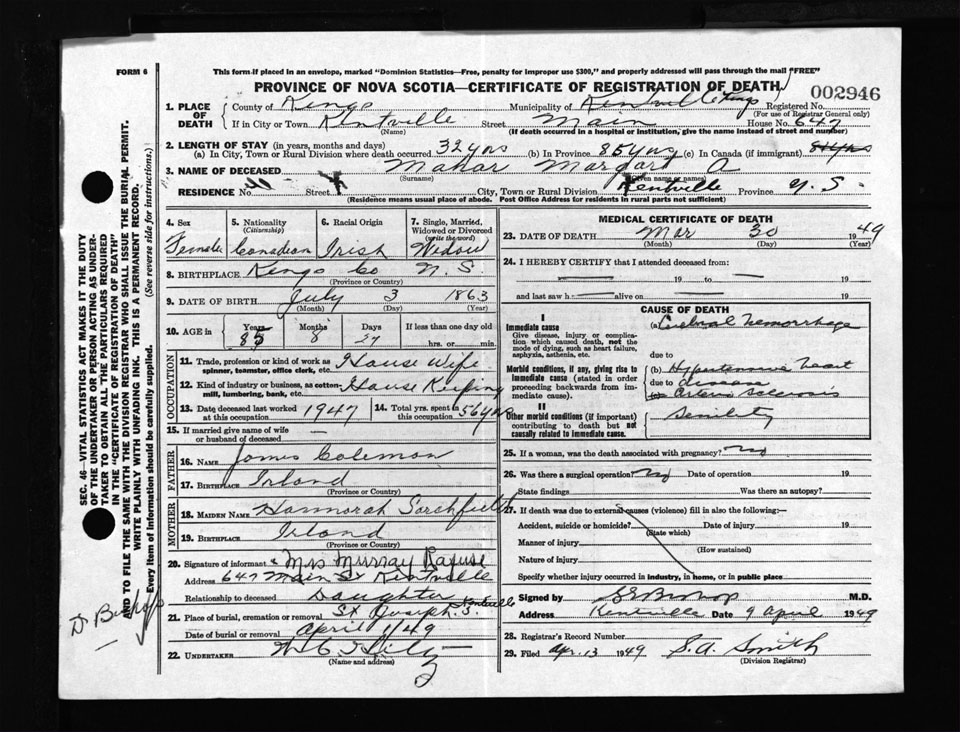 FORM 6
This form if placed in an envelope, marked "Dominion Statistics—Free, penalty for improper use $300," and properly addressed will pass through the mail "FREE"
PROVINCE OF NOVA SCOTIA—CERTIFICATE OF REGISTRATION OF DEATH
002946
1. PLACE OF DEATH
County of Kings Municipality of Kentville Kings Registered No.
(For use of Registrar General only)
If in City or Town Kentville Street Main House No. 647
(Name) (If death occurred in a hospital or institution, give the name instead of street and number)
2. LENGTH OF STAY (in years, months and days)
(a) In City, Town or Rural Division where death occurred 32 yrs (b) In Province 85 yrs (c) In Canada (if immigrant) 85 yrs
3. NAME OF DECEASED Mahar Margaret A
(Surname) (Given name or names)
RESIDENCE No. Street City, Town or Rural Division Kentville Province N.S.
(Residence means usual place of abode. Post Office Address for residents in rural parts not sufficient)
4. Sex 5. Nationality (Citizenship) 6. Racial Origin 7. Single, Married, Widowed or Divorced (write the word)
Female Canadian Irish Widow
8. BIRTHPLACE Kings Co N.S.
(Province or Country)
9. DATE OF BIRTH July 3 1863
(Month) (Day) (Year)
10. AGE in Years Months Days If less than one day old
85 8 27 hrs. or min.
OCCUPATION
11. Trade, profession or kind of work as spinner, teamster, office clerk, etc. House Wife
12. Kind of industry or business, as cotton mill, lumbering, bank, etc. House Keeping
13. Date deceased last worked at this occupation 1947 14. Total yrs. spent in this occupation 56 yrs
15. If married give name of wife or husband of deceased —
FATHER
16. NAME James Coleman
17. BIRTHPLACE Irland
(Province or Country)
MOTHER
18. MAIDEN NAME Hannorah Sarchfield
19. BIRTHPLACE Irland
(Province or Country)
20. Signature of informant Mrs Murray Rafuse
Address 647 Main St Kentville
Relationship to deceased Daughter
21. Place of burial, cremation or removal St Joseph's Kentville
Date of burial or removal April 1/49
22. UNDERTAKER
(Name and address)
MEDICAL CERTIFICATE OF DEATH
23. DATE OF DEATH Mar 30 1949
(Month) (Day) (Year)
24. I HEREBY CERTIFY that I attended deceased from:
— 19 to — 19
and last saw h — alive on — 19
CAUSE OF DEATH
I
Immediate cause
Give disease, injury or complication which caused death, not the mode of dying, such as heart failure, asphyxia, asthenia, etc.
(a) Cerebral hemorrhage
due to
Morbid conditions, if any, giving rise to immediate cause (stated in order proceeding backwards from immediate cause).
(b) Hypertensive heart
due to disease
(c) Arterio sclerosis
II
Other morbid conditions (if important) contributing to death but not causally related to immediate cause.
Senility
25. If a woman, was the death associated with pregnancy? No
26. Was there a surgical operation? No Date of operation 19
State findings Was there an autopsy?
27. If death was due to external causes (violence) fill in also the following:—
Accident, suicide or homicide? Date of injury 19
(State which)
Manner of injury
(How sustained)
Nature of injury
Specify whether injury occurred in industry, in home, or in public place
Signed by Bishop M.D.
Address Kentville Date 9 April 1949
28. Registrar's Record Number
29. Filed Apr. 13 1949 S.A. Smith
(Division Registrar)
SEC. 46—VITAL STATISTICS ACT MAKES IT THE DUTY
OF THE UNDERTAKER OR PERSON ACTING AS UNDER-
TAKER TO OBTAIN ALL THE PARTICULARS REQUIRED
IN THE "CERTIFICATE OF REGISTRATION OF DEATH"
AND TO FILE THE SAME WITH THE DIVISION REGISTRAR WHO SHALL ISSUE THE BURIAL PERMIT.
WRITE PLAINLY WITH UNFADING INK. THIS IS A PERMANENT RECORD.
Every item of information should be carefully supplied. (See reverse side for instructions.)
Dr Bishop